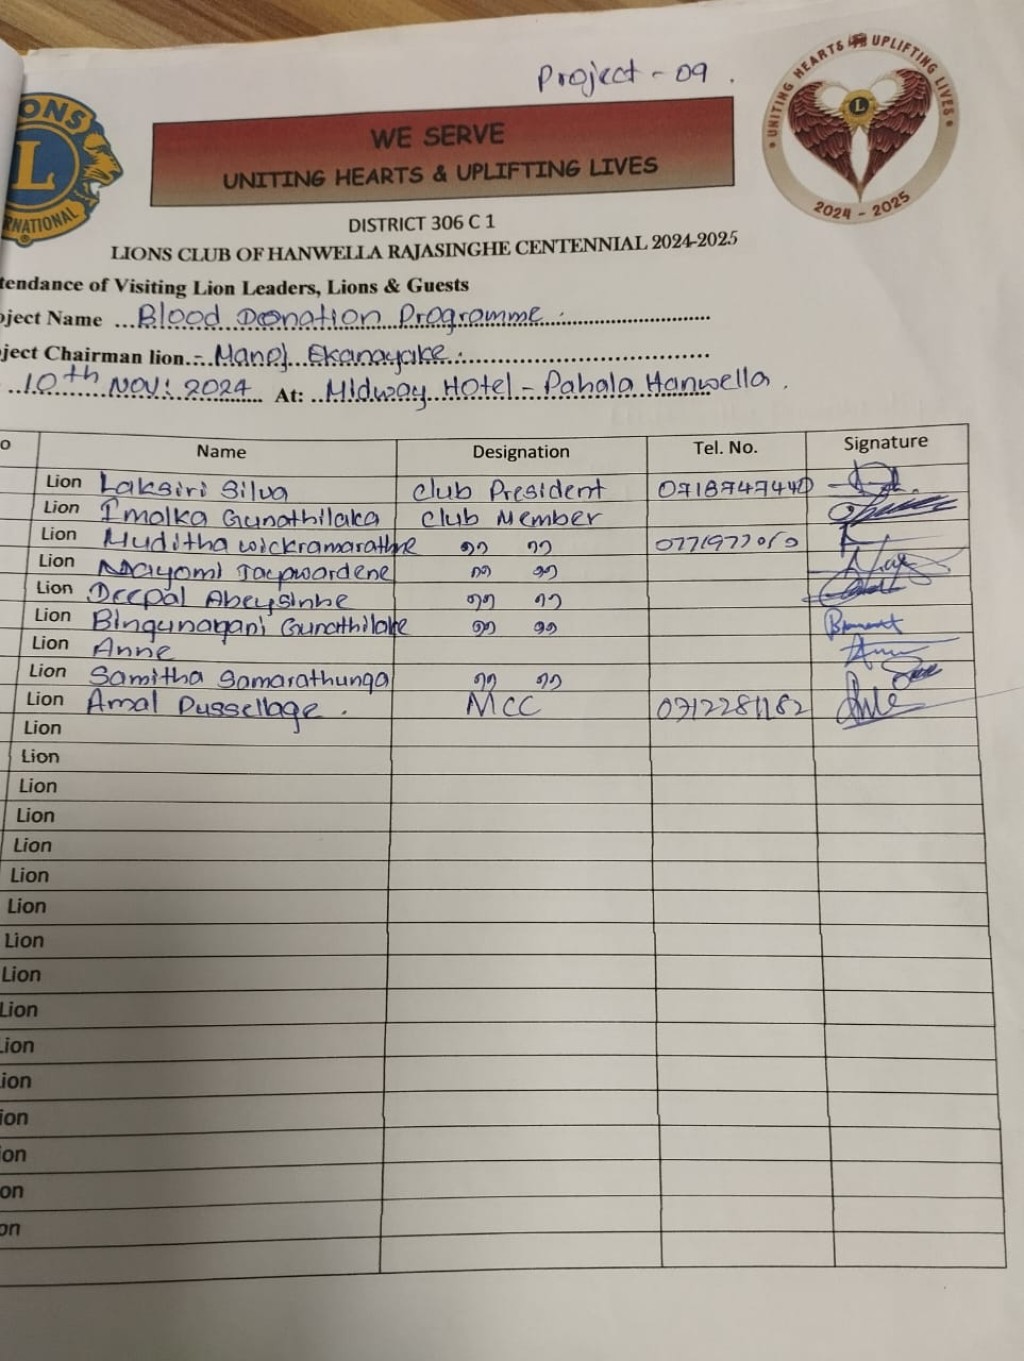 Project - 09 .
UNITING HEARTS & UPLIFTING LIVES
2024 - 2025
IONS
L
RNATIONAL
WE SERVE
UNITING HEARTS & UPLIFTING LIVES
DISTRICT 306 C 1
LIONS CLUB OF HANWELLA RAJASINGHE CENTENNIAL 2024-2025
tendance of Visiting Lion Leaders, Lions & Guests
oject Name ... Blood Donation Programme.
ject Chairman lion.- Manoj Ekanayake.
10th Nov: 2024 At: Midway Hotel - Pahala Hanwella .
o Name Designation Tel. No. Signature
Lion Laksiri Silva Club President 0718747440
Lion Imalka Gunathilaka Club Member
Lion Muditha wickramarathne " " 0771977050
Lion Nayomi " "
Lion Deepal Abeysinhe " "
Lion Gunathilake " "
Lion Anne
Lion Samitha Samarathunga " "
Lion Amal Dussellage . MCC 0712281182
Lion
Lion
Lion
Lion
Lion
Lion
Lion
Lion
Lion
Lion
ion
ion
ion
on
on
on